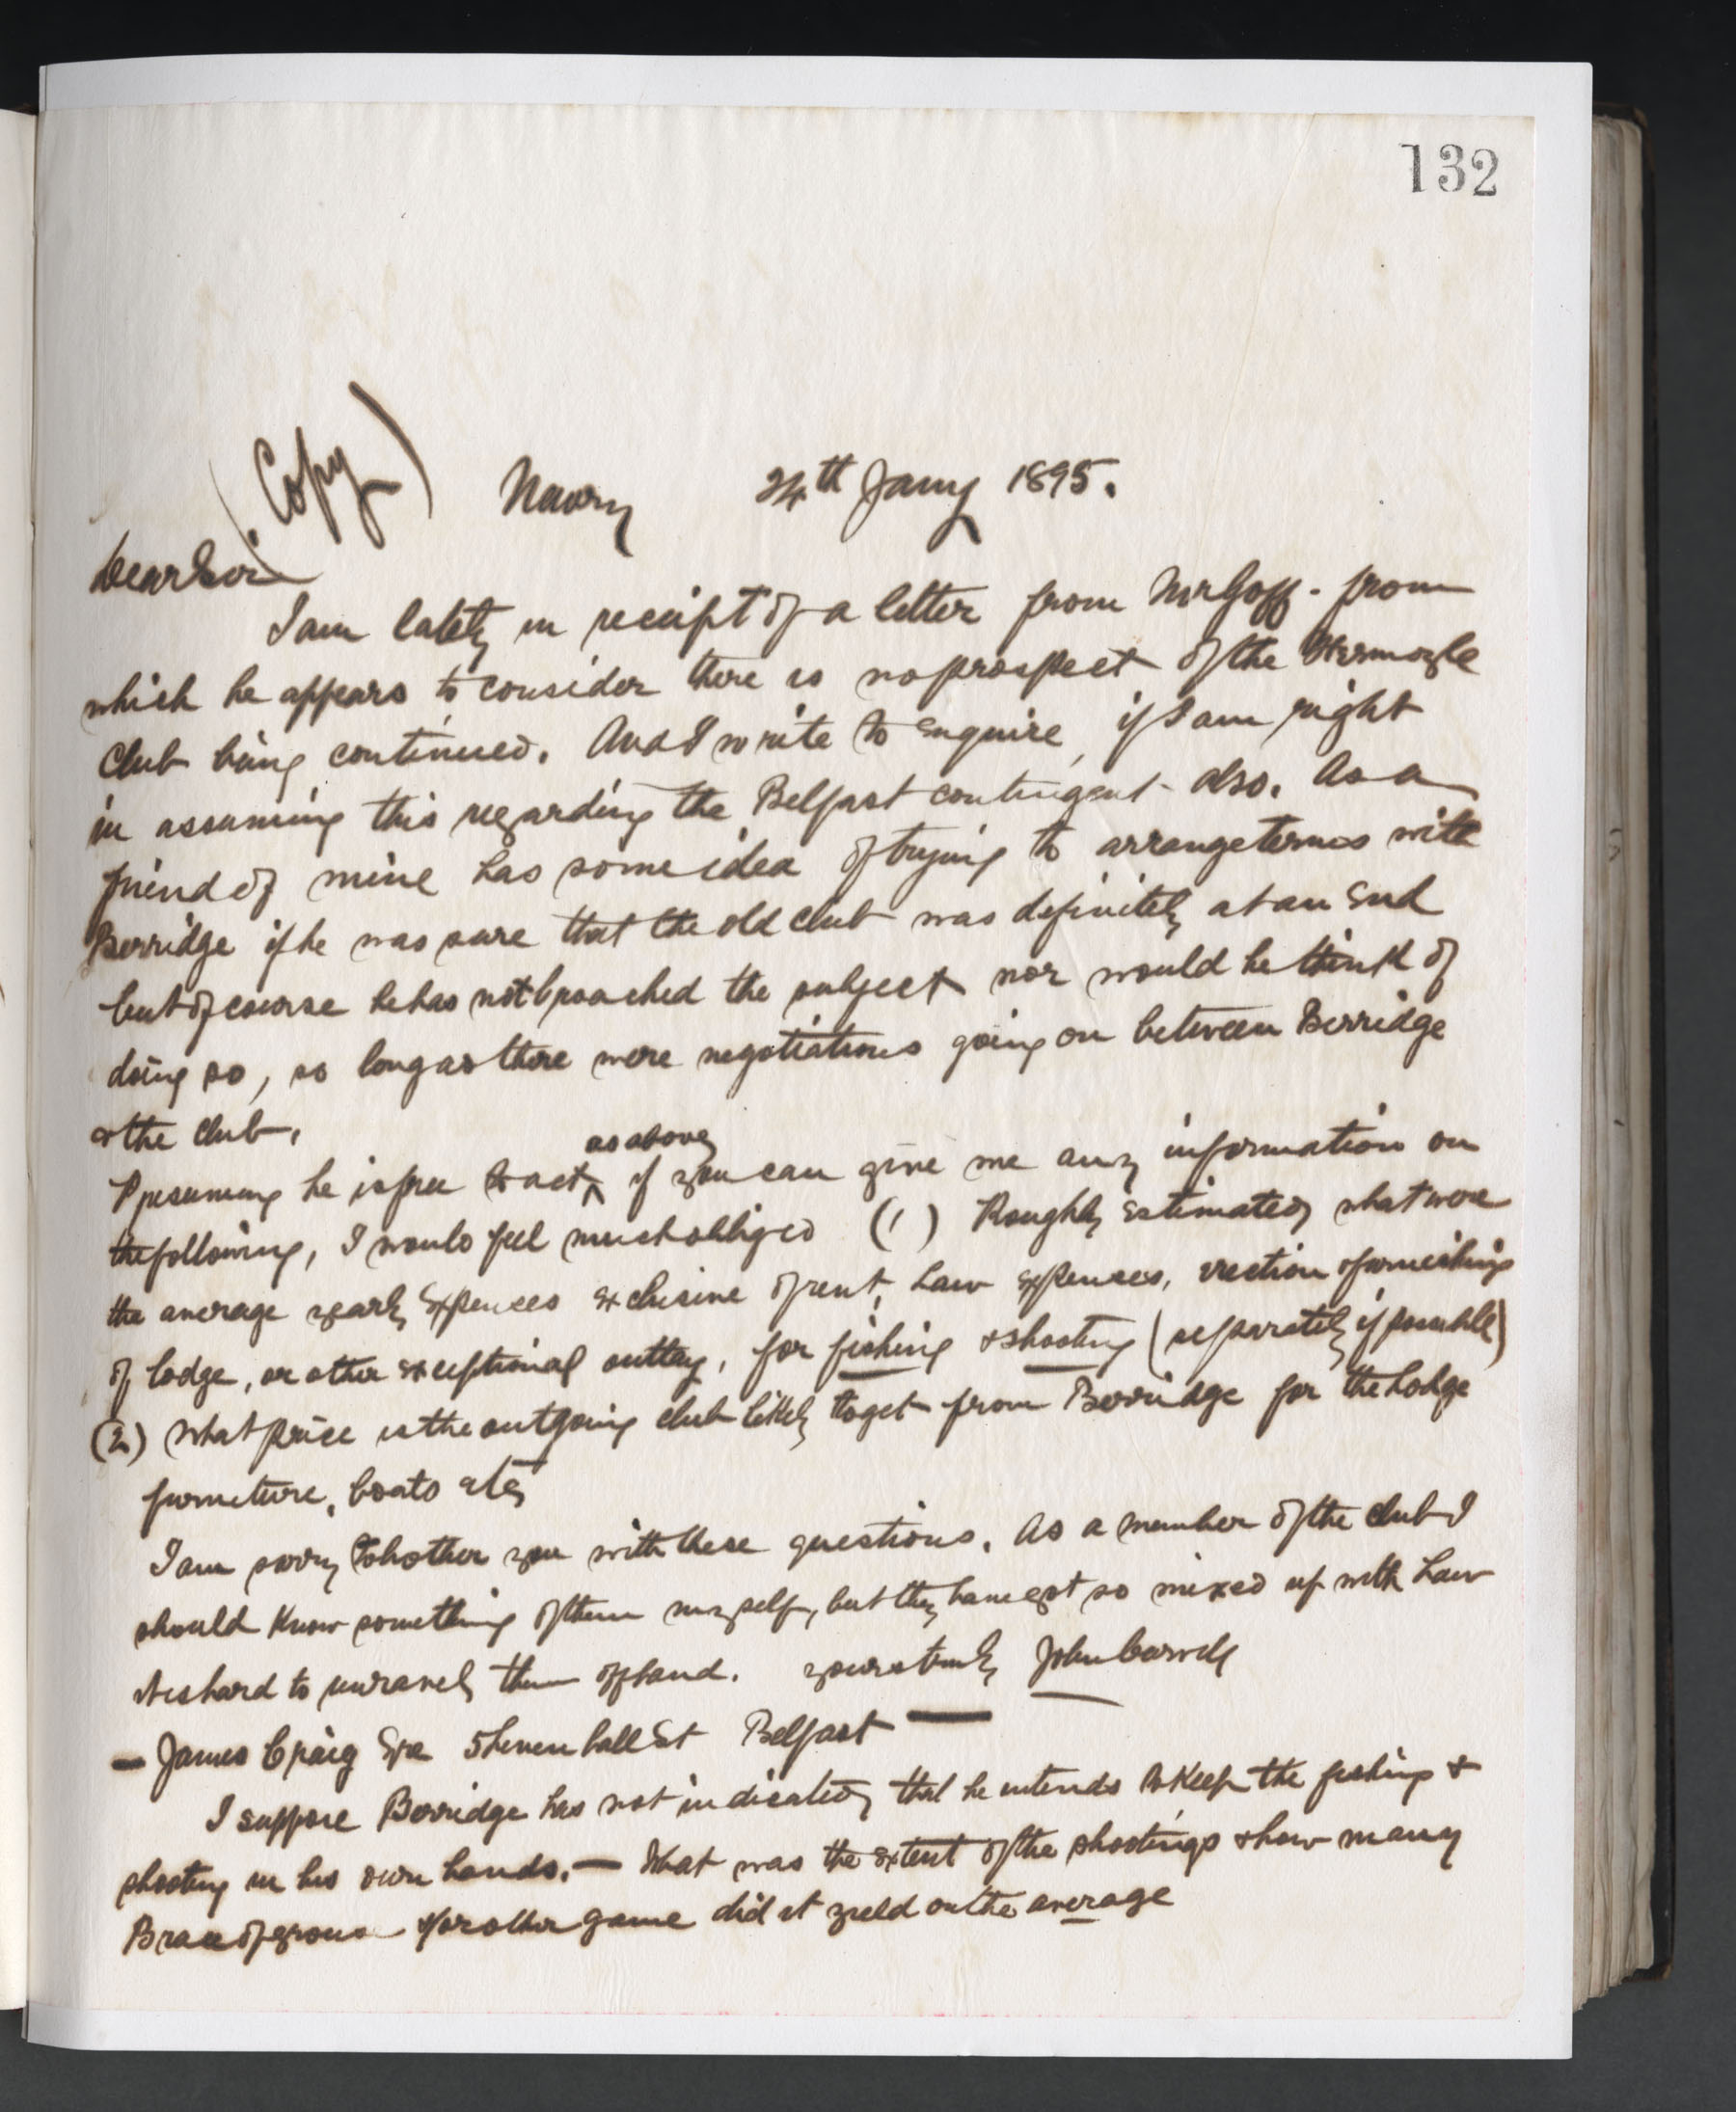 132
(Copy) Newry 24th Jany 1895.
Dear Sir
I am lately in receipt of a letter from Mr Goff - from
which he appears to consider there is no prospect of the
Club being continued. And I write to enquire, if I am right
in assuming this regarding the Belfast contingent also. As a
friend of mine has some idea of trying to arrange terms with
Berridge if he was sure that the old club was definitely at an end
but of course he has not broached the subject nor would he think of
doing so, so long as there were negotiations going on between Berridge
& the club.
as above
Presuming he is free to act, if you can give me any information on
the following, I would feel much obliged (1) Roughly estimated, what were
the average yearly expenses exclusive of rent, Law expenses, erection & furnishing
of lodge, or other exceptional outlay, for fishing & shooting (separately if possible)
(2) What price is the outgoing club likely to get from Berridge for the Lodge
furniture, boats etc
I am sorry to bother you with these questions. As a member of the club I
should know something of them myself, but they have got so mixed up with Law
it is hard to unravel them offhand. yours truly John
— James Craig Esq Belfast —
I suppose Berridge has not indicated, that he intends to keep the fishing &
shooting in his own hands. — What was the extent of the shootings & how many
Brace of grouse &/or other game did it yield on the average